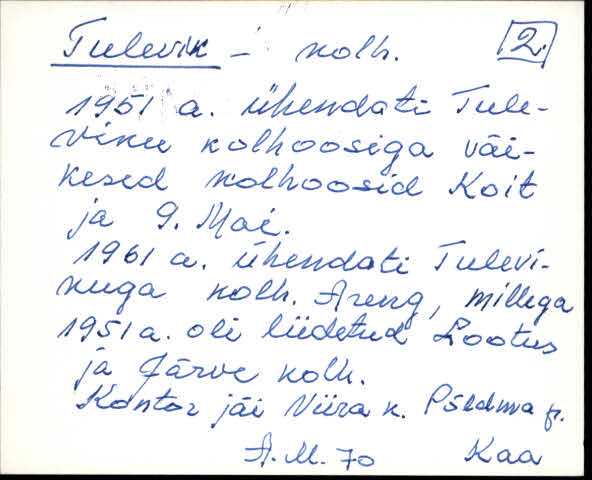 Tulevik - kolh. 2.
1951 a. ühendati Tule-
viku kolhoosiga väi-
kesed kolhoosid Koit
ja 9. Mai.
1961 a. ühendati Tulevi-
kuga kolh. Areng, millega
1951 a. oli liidetud Lootus
ja Järve kolh.
Kontor jäi Viira k. Põldma
A.M. 70 Kaa